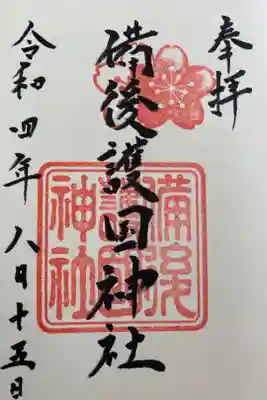 奉拝
備後護国神社
備後護国神社
令和四年八月十五日